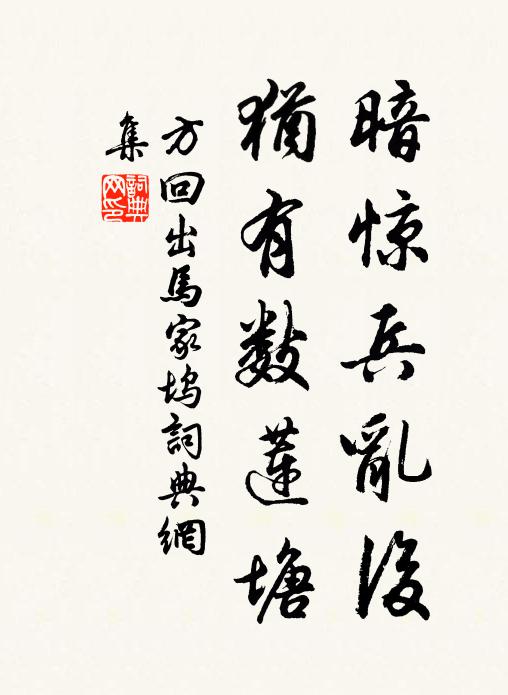 暗惊兵亂後
猶有数蓮塘
方回出馬家塢詞典網
集
詞典
网印